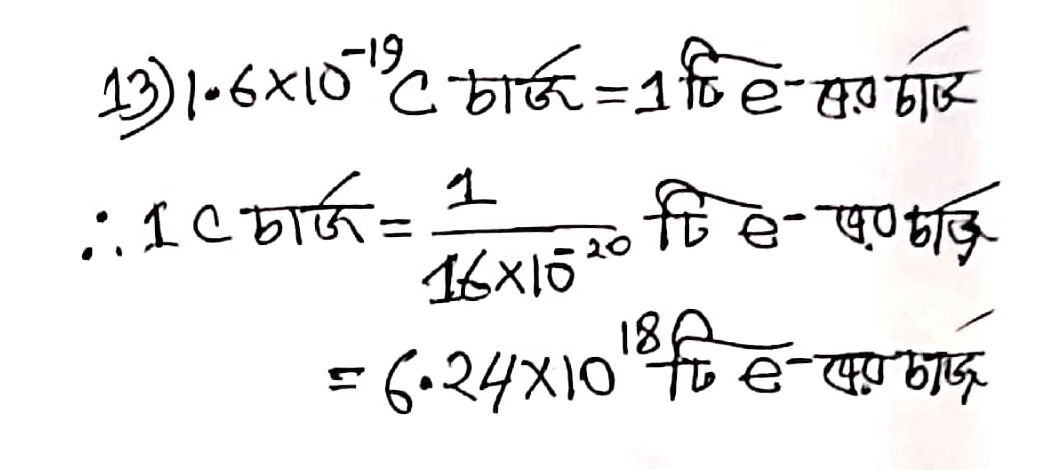 13) 1.6×10⁻¹⁹C চার্জ = 1 টি e⁻ এর চার্জ
∴ 1 C চার্জ = 1/16×10⁻²⁰ টি e⁻ এর চার্জ
= 6.24×10¹⁸ টি e⁻ এর চার্জ